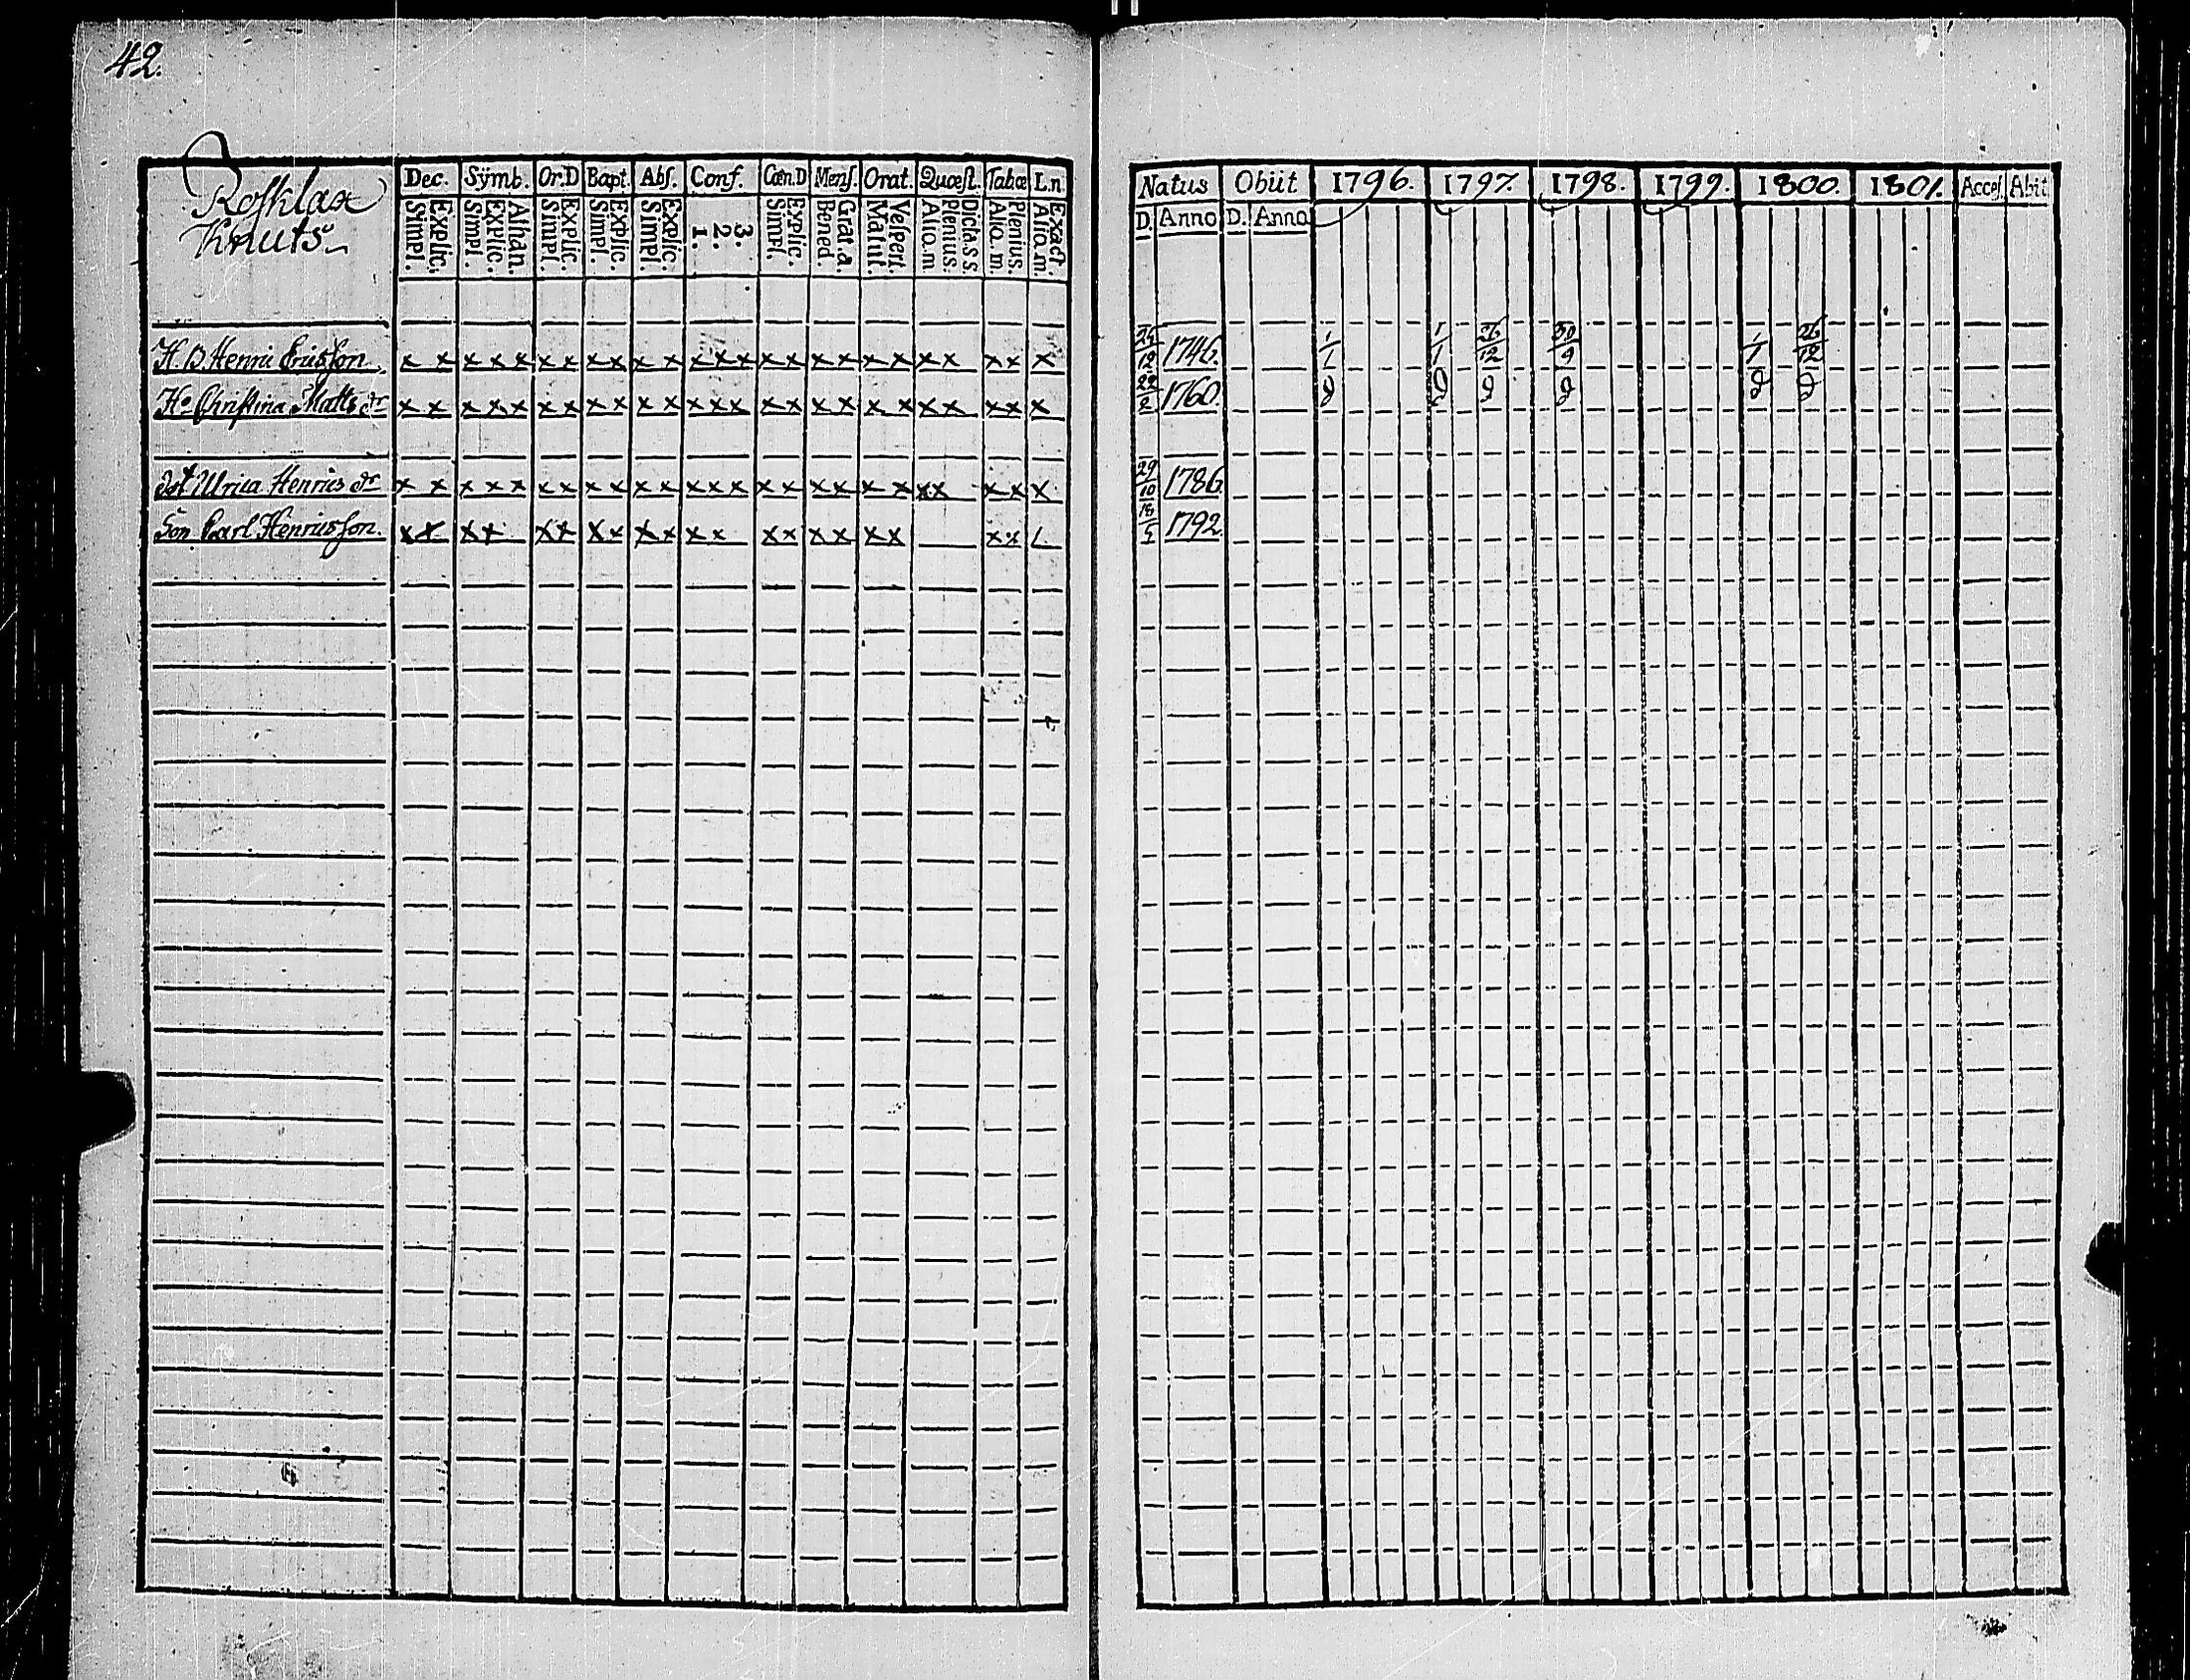 42.
Rosklax
Knuts
Dec. Symb. Or.D Bapt. Abs. Conf. Cœn.D Mens. Orat. Quæst. Tabæ L.n.
Explic. Simpl. Athan. Explic. Simpl. Explic. Simpl. Explic. Simpl. Explic. Simpl. 3. 2. 1. Explic. Simpl. Grat.a. Bened. Vespert. Matut. Dicta.s.s. Plenius. Aliq.m. Plenius. Aliq.m. Exact. Aliq.m.
H. B. Henric Ericsson x x x x x x x x x x x x x x x x x x x x x x x x x
Hu Christina Matts dr x x x x x x x x x x x x x x x x x x x x x x x x x
dot Ulrica Henrics dr x x x x x x x x x x x x x x x x x x x x x x x x x
Son Carl Henricsson. x x x x x x x x x x x x x x x x x x x x x
Natus Obiit 1796. 1797. 1798. 1799. 1800. 1801. Acces. Abit
D. Anno D. Anno
25/12 1746. 1/1 1/1 26/12 30/9 1/1 26/12
22/2 1760.
29/10 1786
18/5 1792